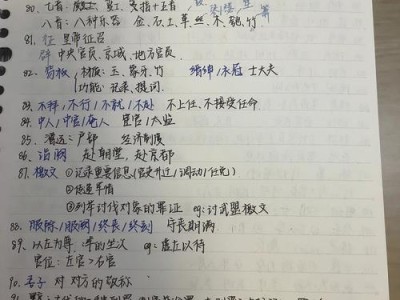 八音：八种乐器 金、石、土、革、丝、木、匏、竹
81. 征 皇帝征召
辟 中央官员、京城、地方官员
82. 笏板 材质：玉、象牙、竹 缙绅/衣冠 士大夫
功能：记录、提词
83. 不拜/不行/不就/不处 不上任、不接受任命
84. 中人/中官/奄人 宦官/太监
85. 度支：户部 经济制度
86. 诣阙 赴朝堂，赴京都
87. 檄文 ①记录重要信息(官吏升迁/调动/任免)
②传递军情
③列举讨伐对象的罪证 eg：讨武曌檄文
88. 服除/服阕/终丧/终制 守丧期满
89. 以左为尊：车的坐次 eg：虚左以待
官位：左官>右官
90. 君子 对对方的敬称